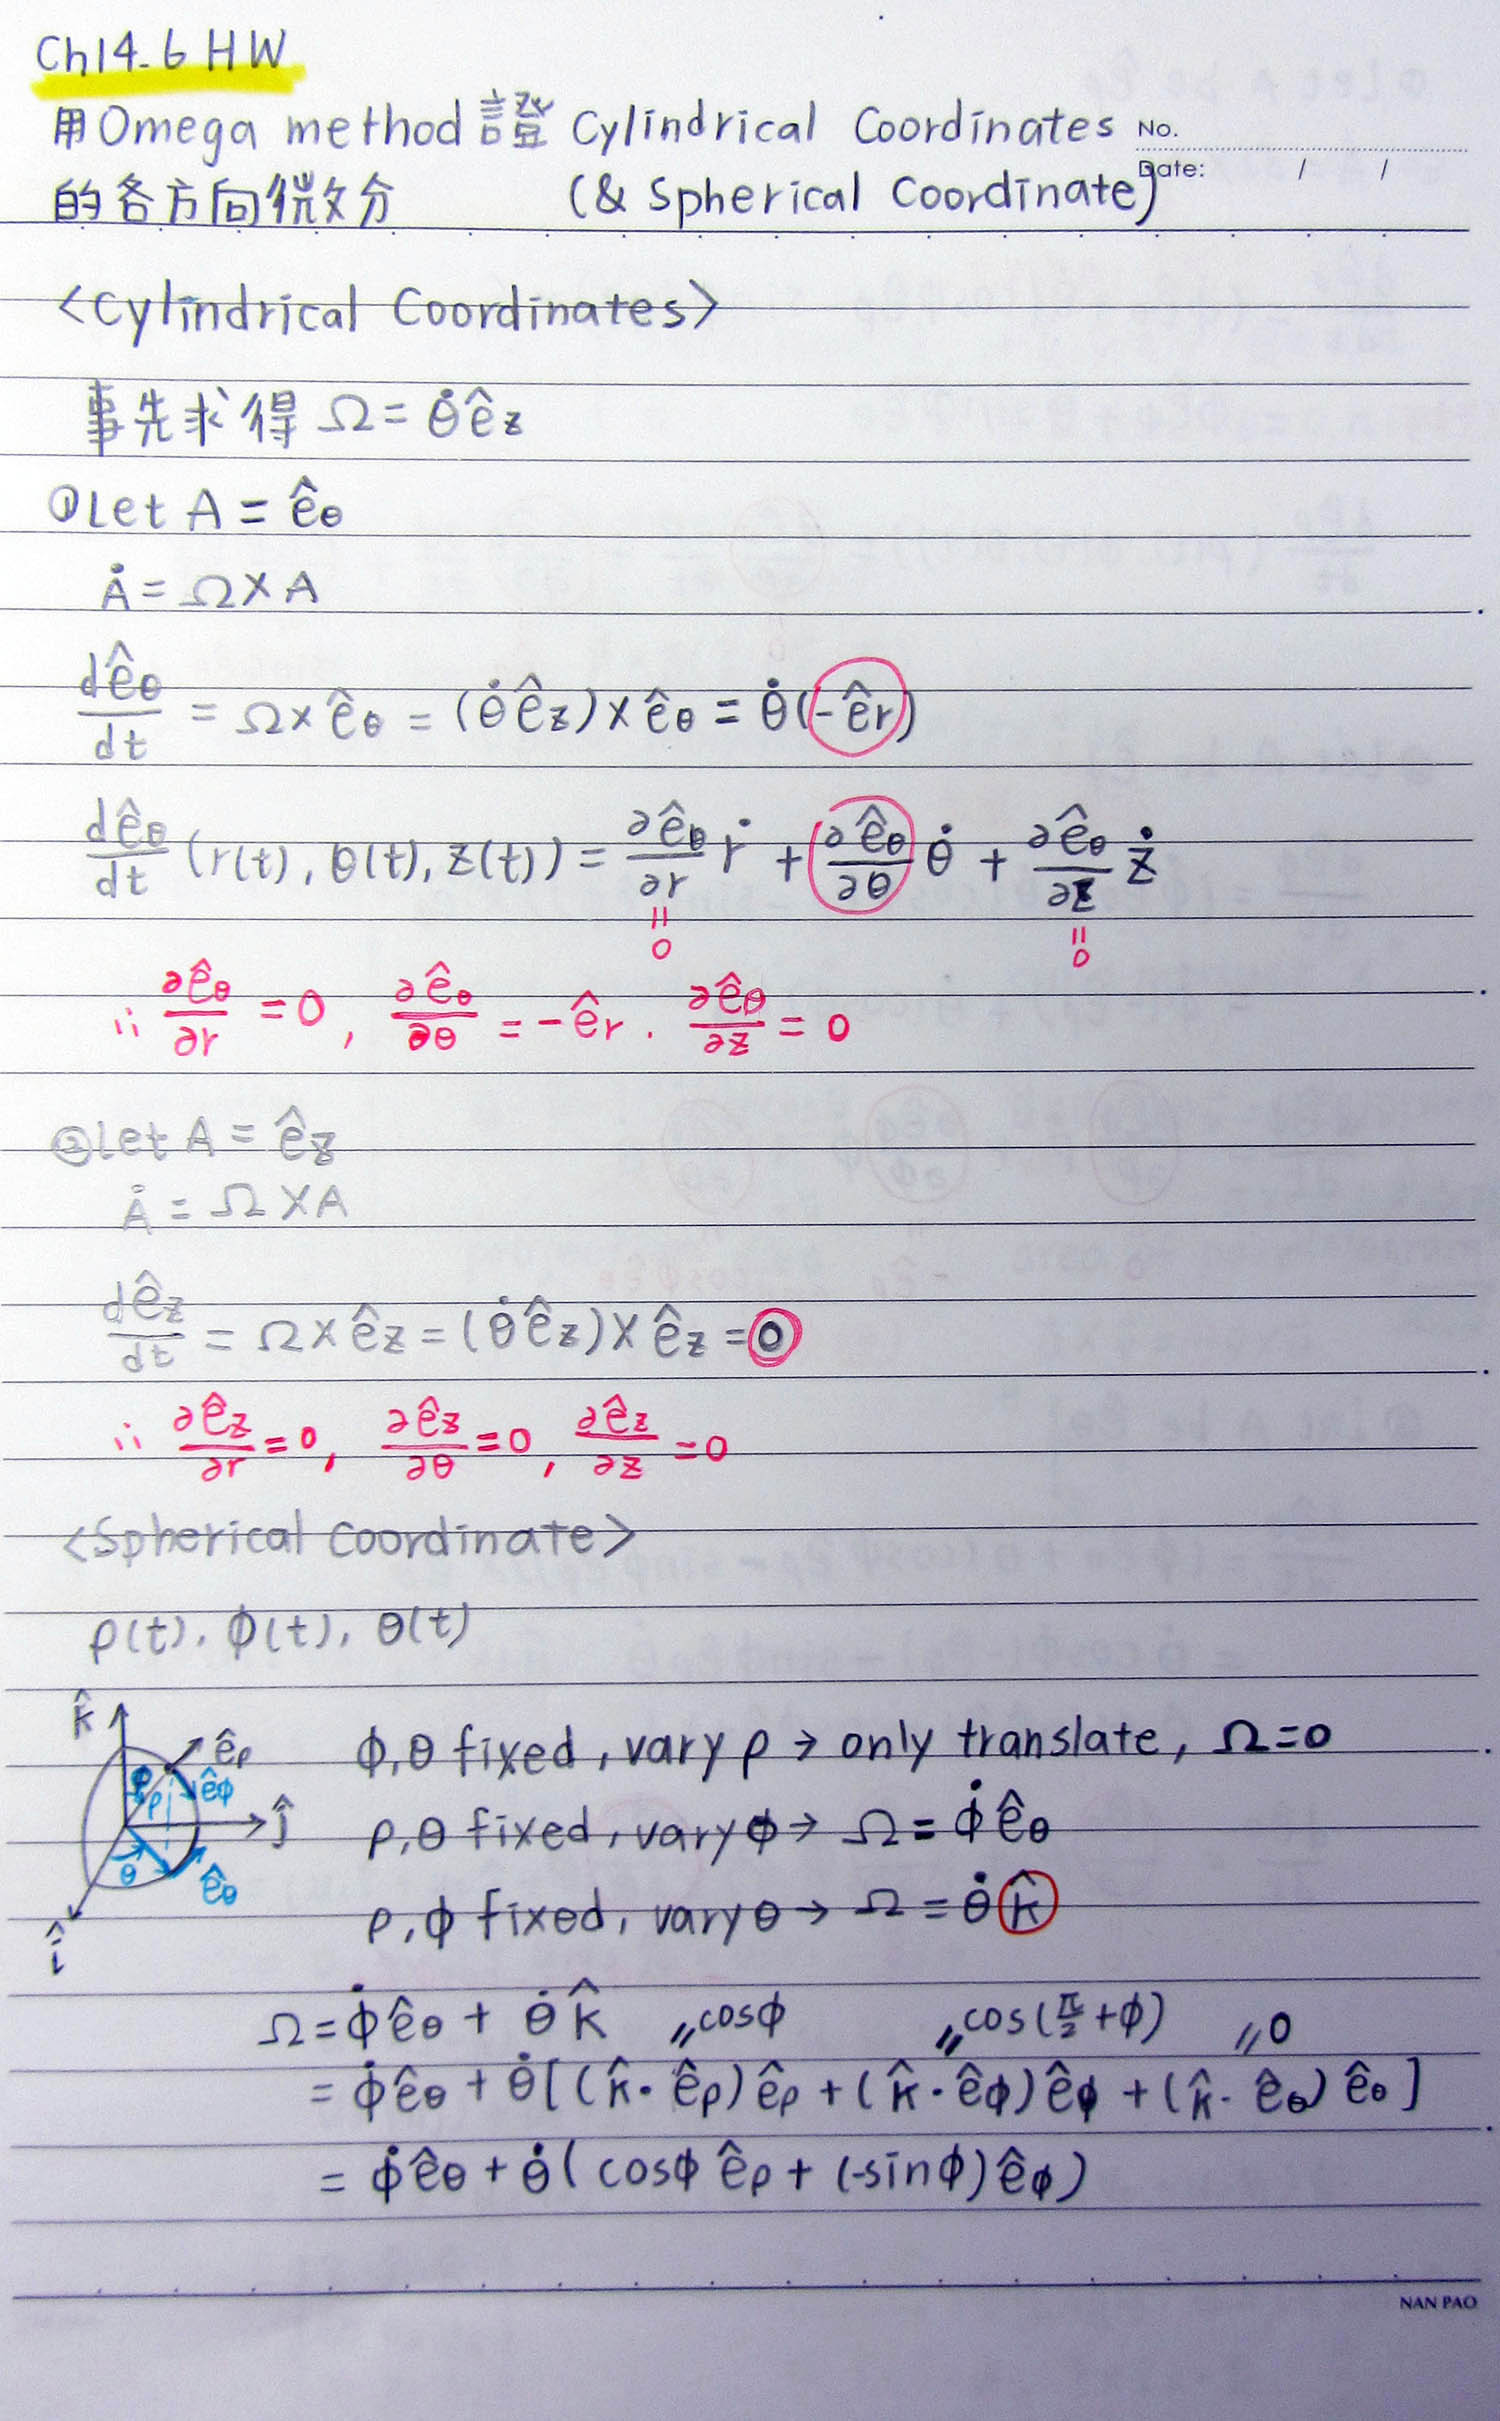 Ch14-6 HW
用Omega method 證 Cylindrical Coordinates
No.
的各方向微分 (& Spherical Coordinate)
Date: / /
<Cylindrical Coordinates>
事先求得 Ω = θ̇ êz
① Let A = êθ
Ȧ = Ω × A
dêθ/dt = Ω × êθ = (θ̇ êz) × êθ = θ̇(-êr)
dêθ/dt (r(t), θ(t), z(t)) = ∂êθ/∂r ṙ + ∂êθ/∂θ θ̇ + ∂êθ/∂z ż
= 0 = 0
∴ ∂êθ/∂r = 0, ∂êθ/∂θ = -êr. ∂êθ/∂z = 0
② Let A = êz
Ȧ = Ω × A
dêz/dt = Ω × êz = (θ̇ êz) × êz = 0
∴ ∂êz/∂r = 0, ∂êz/∂θ = 0, ∂êz/∂z = 0
<Spherical Coordinate>
ρ(t), φ(t), θ(t)
k̂ êρ φ ρ êφ ĵ θ êθ î
φ, θ fixed, vary ρ → only translate, Ω = 0
ρ, θ fixed, vary φ → Ω = φ̇ êθ
ρ, φ fixed, vary θ → Ω = θ̇ k̂
Ω = φ̇ êθ + θ̇ k̂ = cosφ = cos(π/2 + φ) = 0
= φ̇ êθ + θ̇ [(k̂ · êρ) êρ + (k̂ · êφ) êφ + (k̂ · êθ) êθ]
= φ̇ êθ + θ̇ (cosφ êρ + (-sinφ) êφ)
NAN PAO